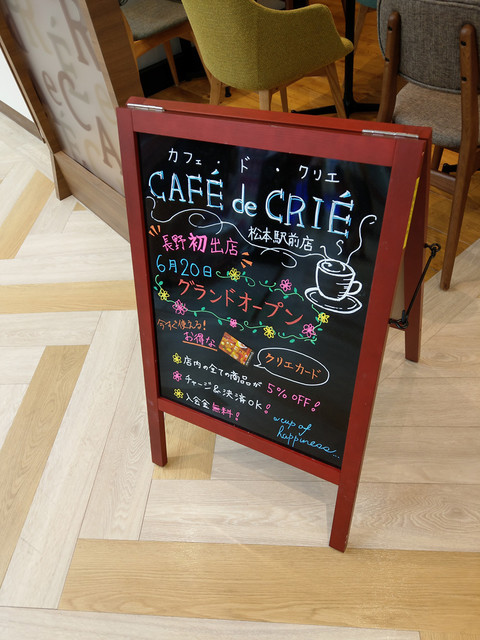 カフェ・ド・クリエ
CAFÉ de CRIÉ
松本駅前店
長野初出店
6月20日
グランドオープン
今すぐ使える!
お得な
クリエカード
店内の全ての商品が 5%OFF!
チャージ&決済OK!
入会金無料!
a cup of
happiness...